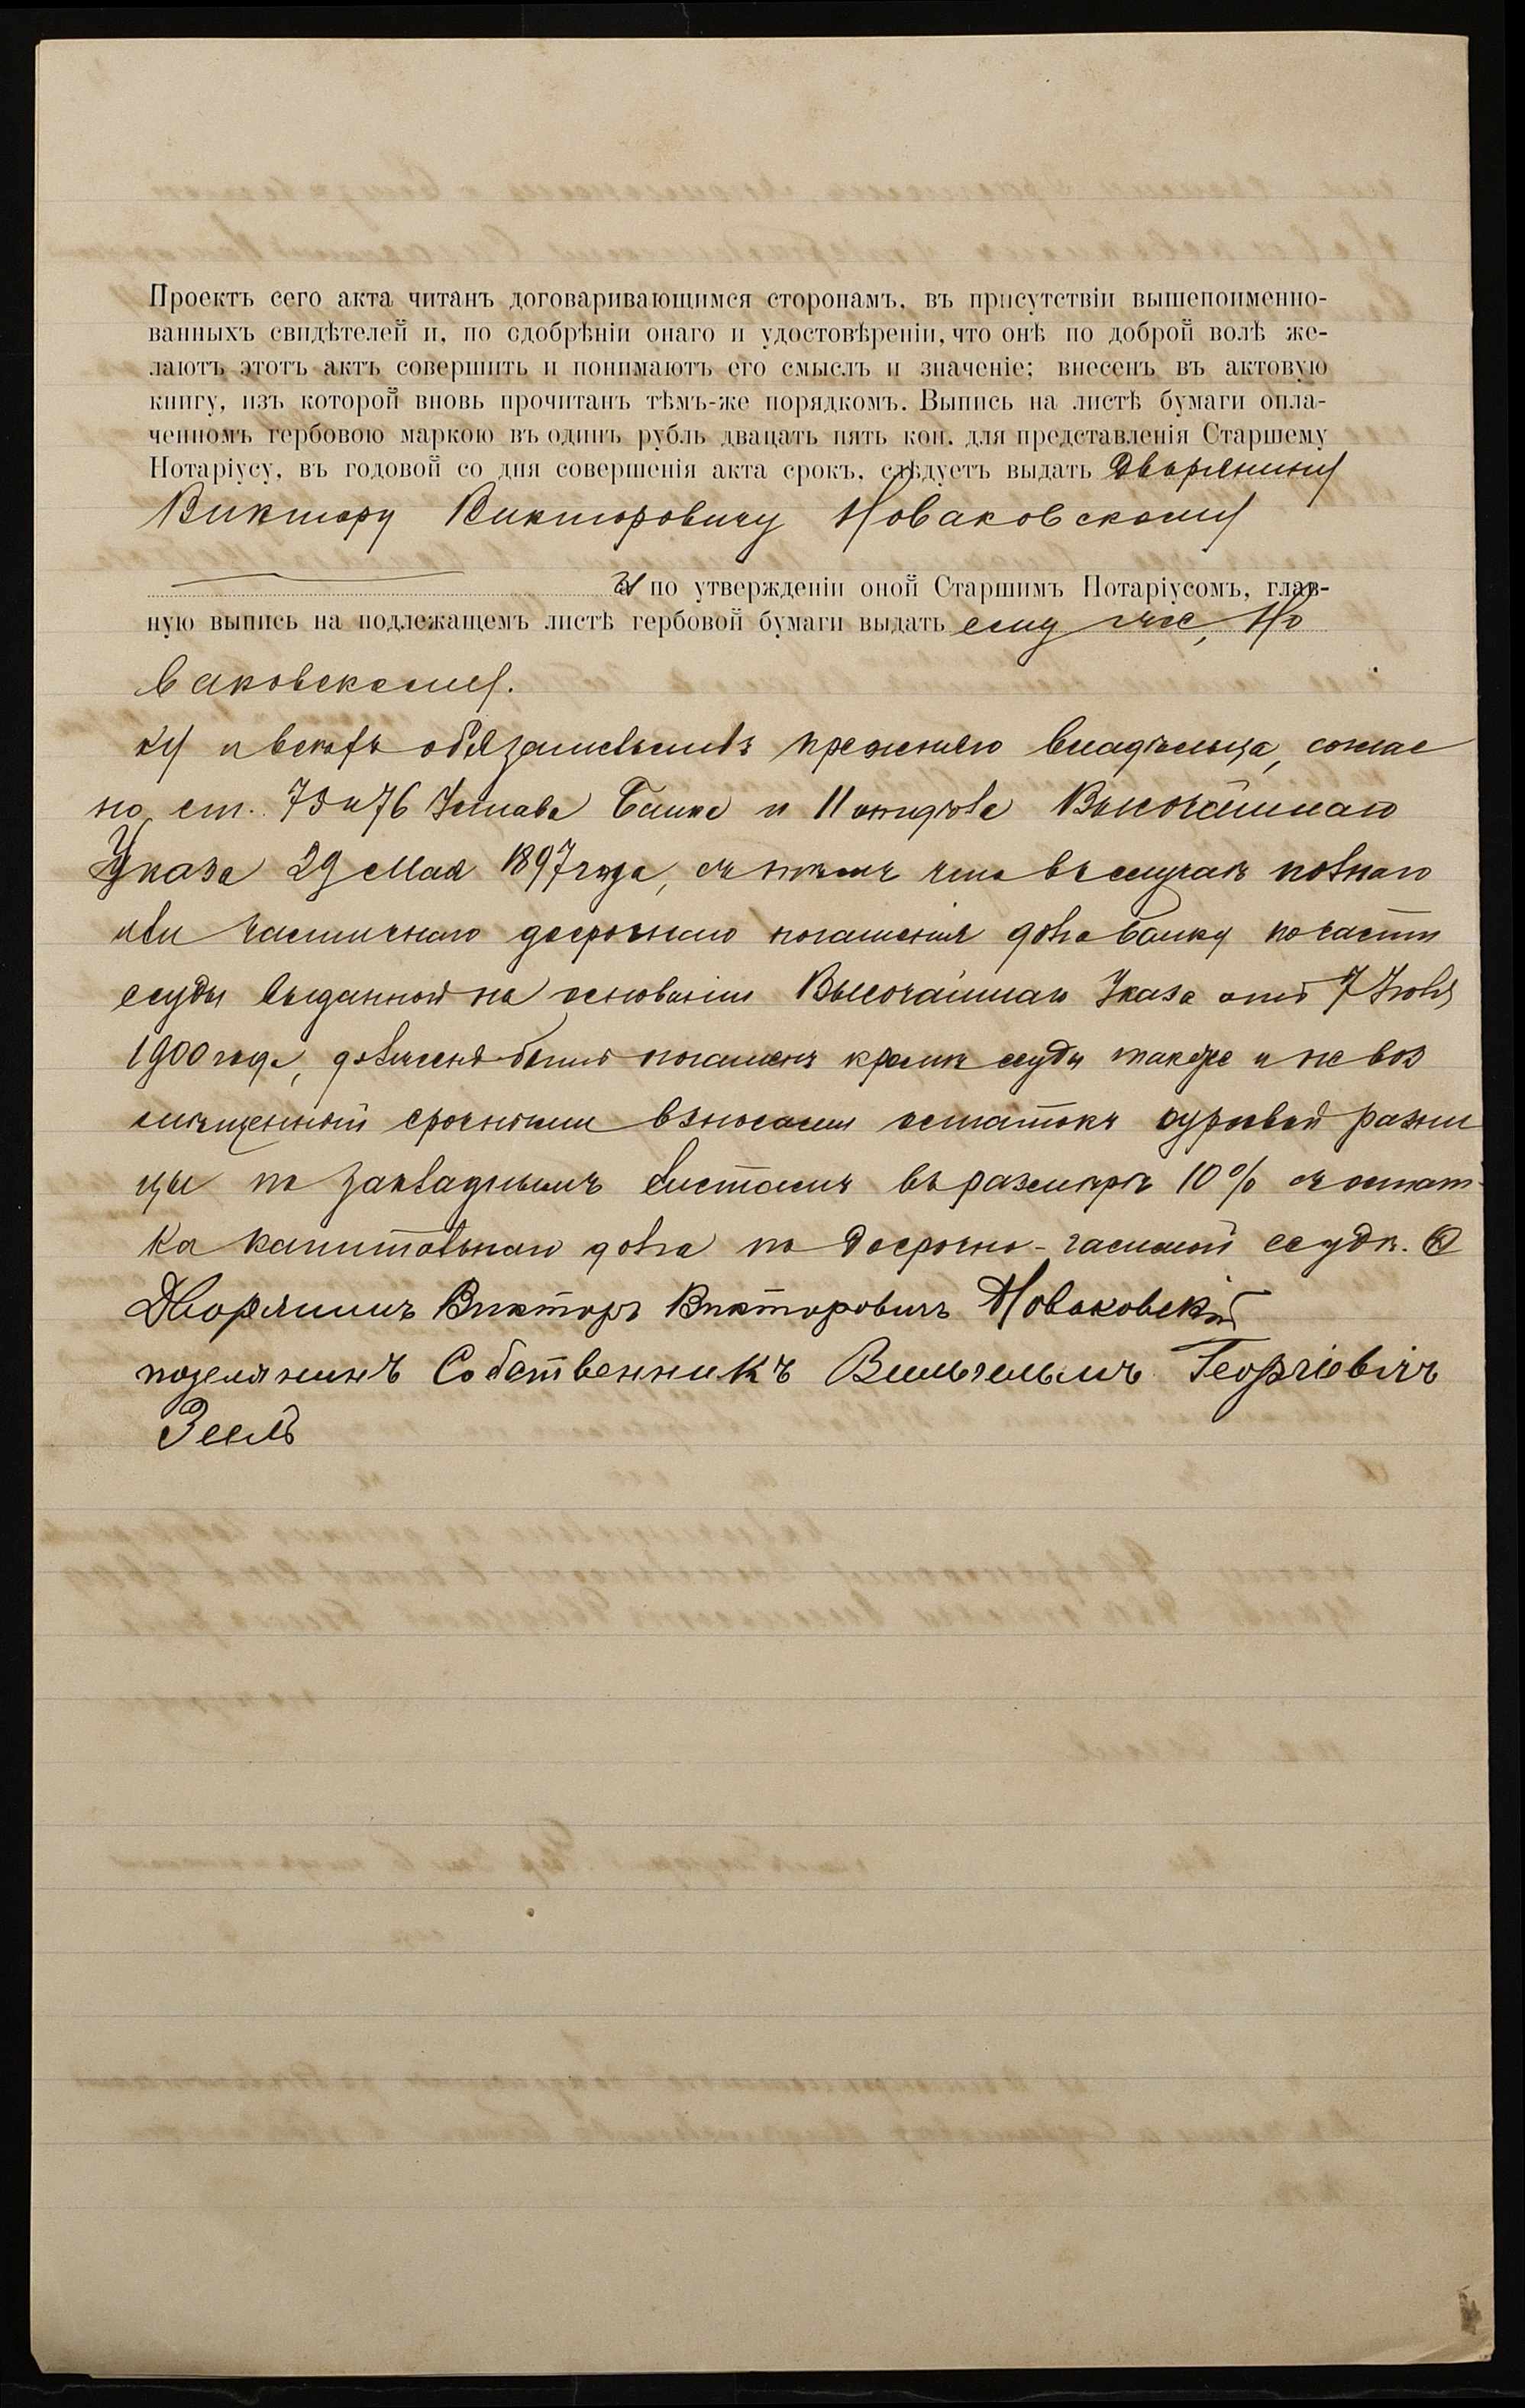 Проектъ сего акта читанъ договаривающимся сторонамъ, въ присутствіи вышепоименно-
ванныхъ свидѣтелей и, по сдобрѣніи онаго и удостовѣреніи, что онѣ по доброй волѣ же-
лаютъ этотъ актъ совершить и понимаютъ его смыслъ и значеніе; внесенъ въ актовую
книгу, изъ которой вновь прочитанъ тѣмъ-же порядкомъ. Выпись на листѣ бумаги опла-
ченномъ гербовою маркою въ одинъ рубль двацать пять коп. для представленія Старшему
Нотаріусу, въ годовой со дня совершенія акта срокъ, слѣдуетъ выдать Дворянину
Виктору Викторовичу Новаковскому
а по утвержденіи оной Старшимъ Нотаріусомъ, глав-
ную выпись на подлежащемъ листѣ гербовой бумаги выдать ему же, Но
ваковскому.
ку и всѣхъ обязательствъ прежняго владѣльца, соглас
но ст. 75 и 76 Устава Банка и II отдѣла Высочайшаго
Указа 29 Мая 1897 года, съ тѣмъ что въ случаѣ полнаго
или частичнаго досрочнаго погашенія долга Банку по части
ссуды выданной на основаніи Высочайшаго Указа отъ 7 Іюля
1900 года, долженъ быть погашенъ кромѣ ссуды также и не воз
мѣщенный срочными взносами остатокъ курсовой разни
цы по закладнымъ листамъ въ размѣрѣ 10% съ остат-
ка капитальнаго долга по досрочно-гасимой ссудѣ.
Дворянинъ Викторъ Викторовичъ Новаковскій
поселянинъ Собственникъ Вильгельмъ Георгіевичъ
Зеель